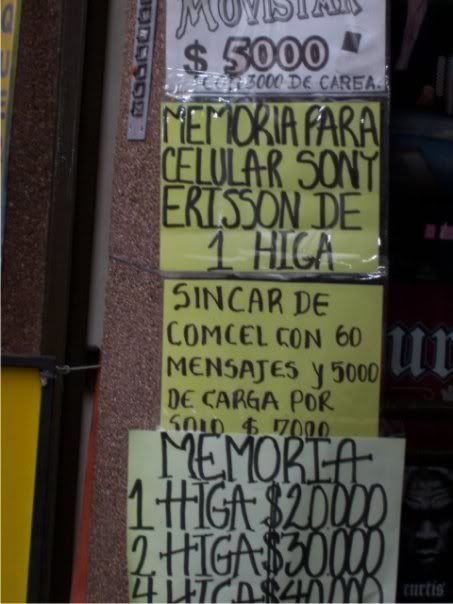 MOVISTAR
$ 5000
CON 3000 DE CARGA.
MEMORIA PARA
CELULAR SONY
ERISSON DE
1 HIGA
SINCAR DE
COMCEL CON 60
MENSAJES Y 5000
DE CARGA POR
SOLO $ 7000
MEMORIA
1 HIGA $20.000
2 HIGA $30.000
4 HIGA $40.000
curtis